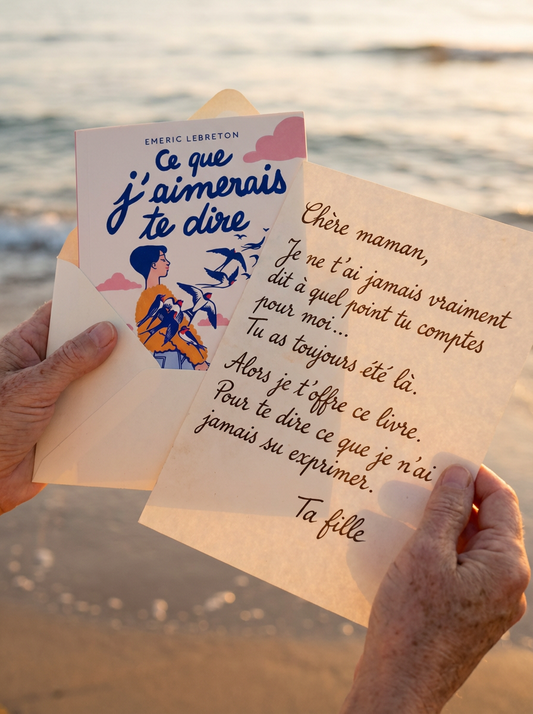 EMERIC LEBRETON
Ce que
j'aimerais
te dire
Chère maman,
Je ne t'ai jamais vraiment
dit à quel point tu comptes
pour moi...
Tu as toujours été là.
Alors je t'offre ce livre.
Pour te dire ce que je n'ai
jamais su exprimer.
Ta fille